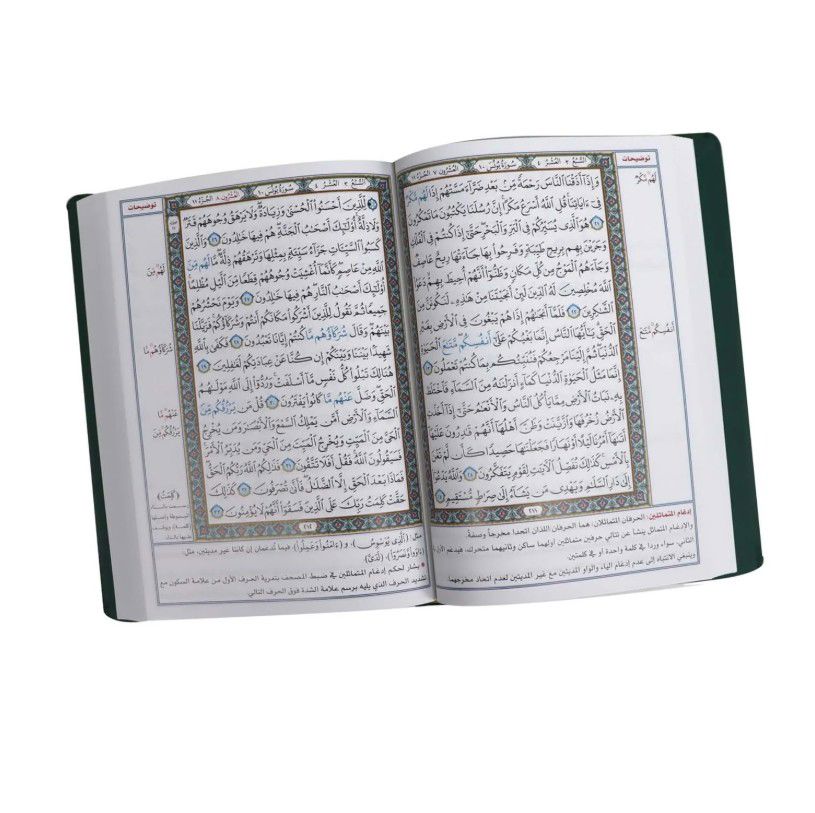 توضيحات
السُّبُع ٣ العُشْر ٤
سُورَةُ يُونُسَ ١٠
العُشْرُونَ ٧ الجُزْءُ ١١
وَإِذَآ أَذَقْنَا ٱلنَّاسَ رَحْمَةً مِّنۢ بَعْدِ ضَرَّآءَ مَسَّتْهُمْ إِذَا لَهُم مَّكْرٌ
فِىٓ ءَايَاتِنَا قُلِ ٱللَّهُ أَسْرَعُ مَكْرًا إِنَّ رُسُلَنَا يَكْتُبُونَ مَا تَمْكُرُونَ
٢١ هُوَ ٱلَّذِى يُسَيِّرُكُمْ فِى ٱلْبَرِّ وَٱلْبَحْرِ حَتَّىٰٓ إِذَا كُنتُمْ فِى ٱلْفُلْكِ
وَجَرَيْنَ بِهِم بِرِيحٍ طَيِّبَةٍ وَفَرِحُوا۟ بِهَا جَآءَتْهَا رِيحٌ عَاصِفٌ
وَجَآءَهُمُ ٱلْمَوْجُ مِن كُلِّ مَكَانٍ وَظَنُّوٓا۟ أَنَّهُمْ أُحِيطَ بِهِمْ دَعَوُا۟
ٱللَّهَ مُخْلِصِينَ لَهُ ٱلدِّينَ لَئِنْ أَنجَيْتَنَا مِنْ هَٰذِهِۦ لَنَكُونَنَّ مِنَ
ٱلشَّٰكِرِينَ ٢٢ فَلَمَّآ أَنجَىٰهُمْ إِذَا هُمْ يَبْغُونَ فِى ٱلْأَرْضِ بِغَيْرِ
ٱلْحَقِّ يَٰٓأَيُّهَا ٱلنَّاسُ إِنَّمَا بَغْيُكُمْ عَلَىٰٓ أَنفُسِكُم مَّتَٰعَ ٱلْحَيَوٰةِ
ٱلدُّنْيَا ثُمَّ إِلَيْنَا مَرْجِعُكُمْ فَنُنَبِّئُكُم بِمَا كُنتُمْ تَعْمَلُونَ ٢٣
إِنَّمَا مَثَلُ ٱلْحَيَوٰةِ ٱلدُّنْيَا كَمَآءٍ أَنزَلْنَٰهُ مِنَ ٱلسَّمَآءِ فَٱخْتَلَطَ
بِهِۦ نَبَاتُ ٱلْأَرْضِ مِمَّا يَأْكُلُ ٱلنَّاسُ وَٱلْأَنْعَٰمُ حَتَّىٰٓ إِذَآ أَخَذَتِ
ٱلْأَرْضُ زُخْرُفَهَا وَٱزَّيَّنَتْ وَظَنَّ أَهْلُهَآ أَنَّهُمْ قَٰدِرُونَ عَلَيْهَآ
أَتَىٰهَآ أَمْرُنَا لَيْلًا أَوْ نَهَارًا فَجَعَلْنَٰهَا حَصِيدًا كَأَن لَّمْ تَغْنَ
بِٱلْأَمْسِ كَذَٰلِكَ نُفَصِّلُ ٱلْءَايَٰتِ لِقَوْمٍ يَتَفَكَّرُونَ ٢٤ وَٱللَّهُ يَدْعُوٓا۟
إِلَىٰ دَارِ ٱلسَّلَٰمِ وَيَهْدِى مَن يَشَآءُ إِلَىٰ صِرَٰطٍ مُّسْتَقِيمٍ ٢٥
٢١١
لَهُم مَّكْرٌ
أَنفُسِكُم مَّتَٰعَ
إدغام المتماثلين: الحرفان المتماثلان: هما الحرفان اللذان اتحدا مخرجاً وصفة.
والإدغام المتماثل ينشأ عن تتالي حرفين متماثلين أولهما ساكن وثانيهما متحرك، فيدغم الأول
الثاني، سواء وردا في كلمة واحدة أو في كلمتين.
وينبغي الانتباه إلى عدم إدغام الياء والواو المديتين مع غير المديتين لعدم اتحاد مخرجهما
توضيحات
السُّبُع ٣ العُشْر ٤
سُورَةُ يُونُسَ ١٠
العُشْرُونَ ٨ الجُزْءُ ١١
لِّلَّذِينَ أَحْسَنُوا۟ ٱلْحُسْنَىٰ وَزِيَادَةٌ وَلَا يَرْهَقُ وُجُوهَهُمْ قَتَرٌ
وَلَا ذِلَّةٌ أُو۟لَٰٓئِكَ أَصْحَٰبُ ٱلْجَنَّةِ هُمْ فِيهَا خَٰلِدُونَ ٢٦ وَٱلَّذِينَ
كَسَبُوا۟ ٱلسَّيِّـَٔاتِ جَزَآءُ سَيِّئَةٍۭ بِمِثْلِهَا وَتَرْهَقُهُمْ ذِلَّةٌ مَّا لَهُم مِّنَ
ٱللَّهِ مِنْ عَاصِمٍ كَأَنَّمَآ أُغْشِيَتْ وُجُوهُهُمْ قِطَعًا مِّنَ ٱلَّيْلِ مُظْلِمًا
أُو۟لَٰٓئِكَ أَصْحَٰبُ ٱلنَّارِ هُمْ فِيهَا خَٰلِدُونَ ٢٧ وَيَوْمَ نَحْشُرُهُمْ
جَمِيعًا ثُمَّ نَقُولُ لِلَّذِينَ أَشْرَكُوا۟ مَكَانَكُمْ أَنتُمْ وَشُرَكَآؤُكُمْ فَزَيَّلْنَا
بَيْنَهُمْ وَقَالَ شُرَكَآؤُهُم مَّا كُنتُمْ إِيَّانَا تَعْبُدُونَ ٢٨ فَكَفَىٰ بِٱللَّهِ
شَهِيدًۢا بَيْنَنَا وَبَيْنَكُمْ إِن كُنَّا عَنْ عِبَادَتِكُمْ لَغَٰفِلِينَ ٢٩
هُنَالِكَ تَبْلُوا۟ كُلُّ نَفْسٍ مَّآ أَسْلَفَتْ وَرُدُّوٓا۟ إِلَى ٱللَّهِ مَوْلَىٰهُمُ
ٱلْحَقِّ وَضَلَّ عَنْهُم مَّا كَانُوا۟ يَفْتَرُونَ ٣٠ قُلْ مَن يَرْزُقُكُم مِّنَ
ٱلسَّمَآءِ وَٱلْأَرْضِ أَمَّن يَمْلِكُ ٱلسَّمْعَ وَٱلْأَبْصَٰرَ وَمَن يُخْرِجُ
ٱلْحَىَّ مِنَ ٱلْمَيِّتِ وَيُخْرِجُ ٱلْمَيِّتَ مِنَ ٱلْحَىِّ وَمَن يُدَبِّرُ ٱلْأَمْرَ
فَسَيَقُولُونَ ٱللَّهُ فَقُلْ أَفَلَا تَتَّقُونَ ٣١ فَذَٰلِكُمُ ٱللَّهُ رَبُّكُمُ ٱلْحَقُّ
فَمَاذَا بَعْدَ ٱلْحَقِّ إِلَّا ٱلضَّلَٰلُ فَأَنَّىٰ تُصْرَفُونَ ٣٢ كَذَٰلِكَ
حَقَّتْ كَلِمَتُ رَبِّكَ عَلَى ٱلَّذِينَ فَسَقُوٓا۟ أَنَّهُمْ لَا يُؤْمِنُونَ ٣٣
٢١٢
لَهُم مِّنَ
شُرَكَآؤُهُم مَّا
عَنْهُم مَّا
يَرْزُقُكُم مِّنَ
(كَلِمَتُ)
مثل: (ٱلَّذِى يُوَسْوِسُ)، و (ءَامَنُوا۟ وَعَمِلُوا۟)، فيما تُدغمان إن كانتا غير مديتين، مثل:
(ءَاوَوا۟ وَّنَصَرُوٓا۟)، (لَدَىَّ).
يشار لحكم إدغام المتماثلين في ضبط المصحف بتعرية الحرف الأول من علامة السكون مع
تشديد الحرف الذي يليه برسم علامة الشدة فوق الحرف التالي.